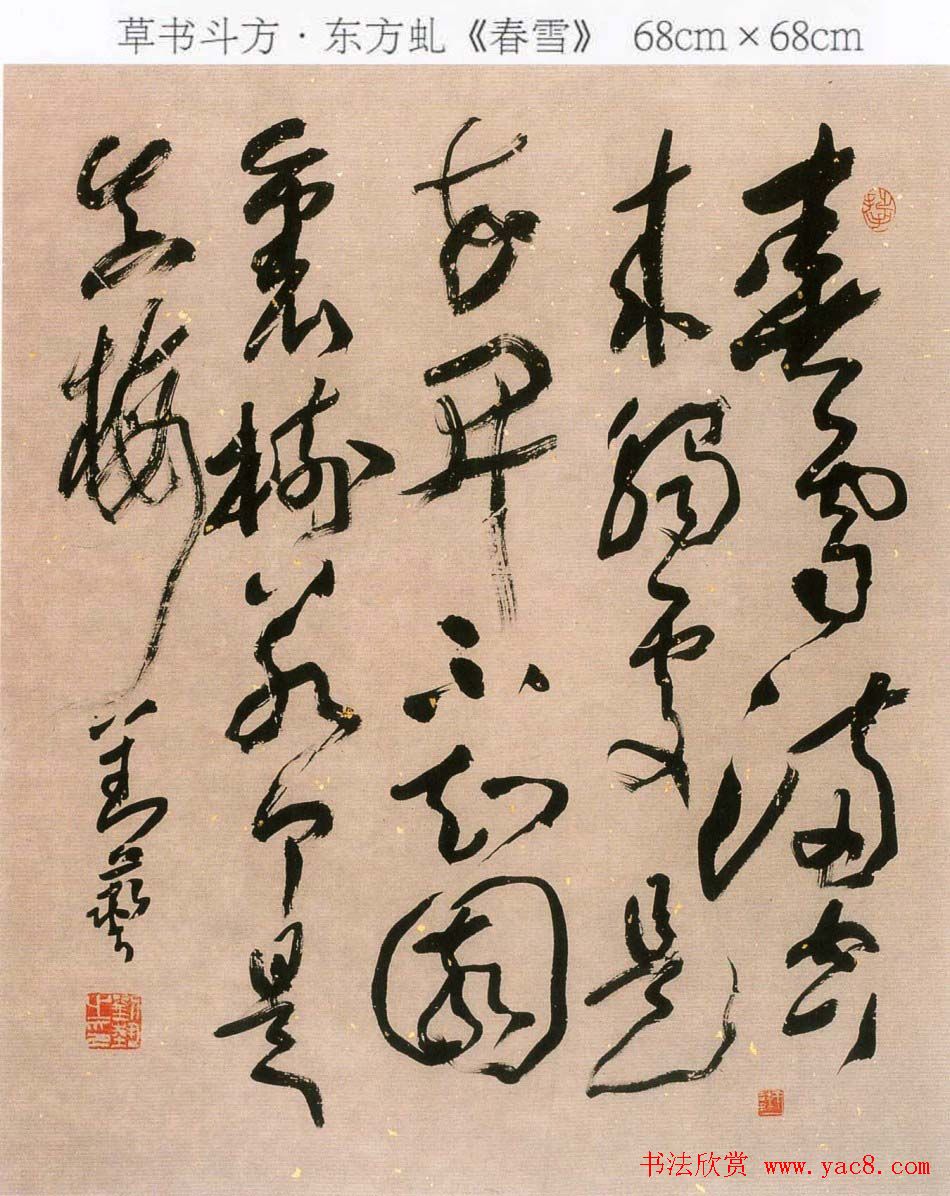 草书斗方·东方虬《春雪》 68cm×68cm
春雪滿空
来觸處是
花開不知園
裏樹若个是
真梅
劉藝
书法欣赏 www.yac8.com